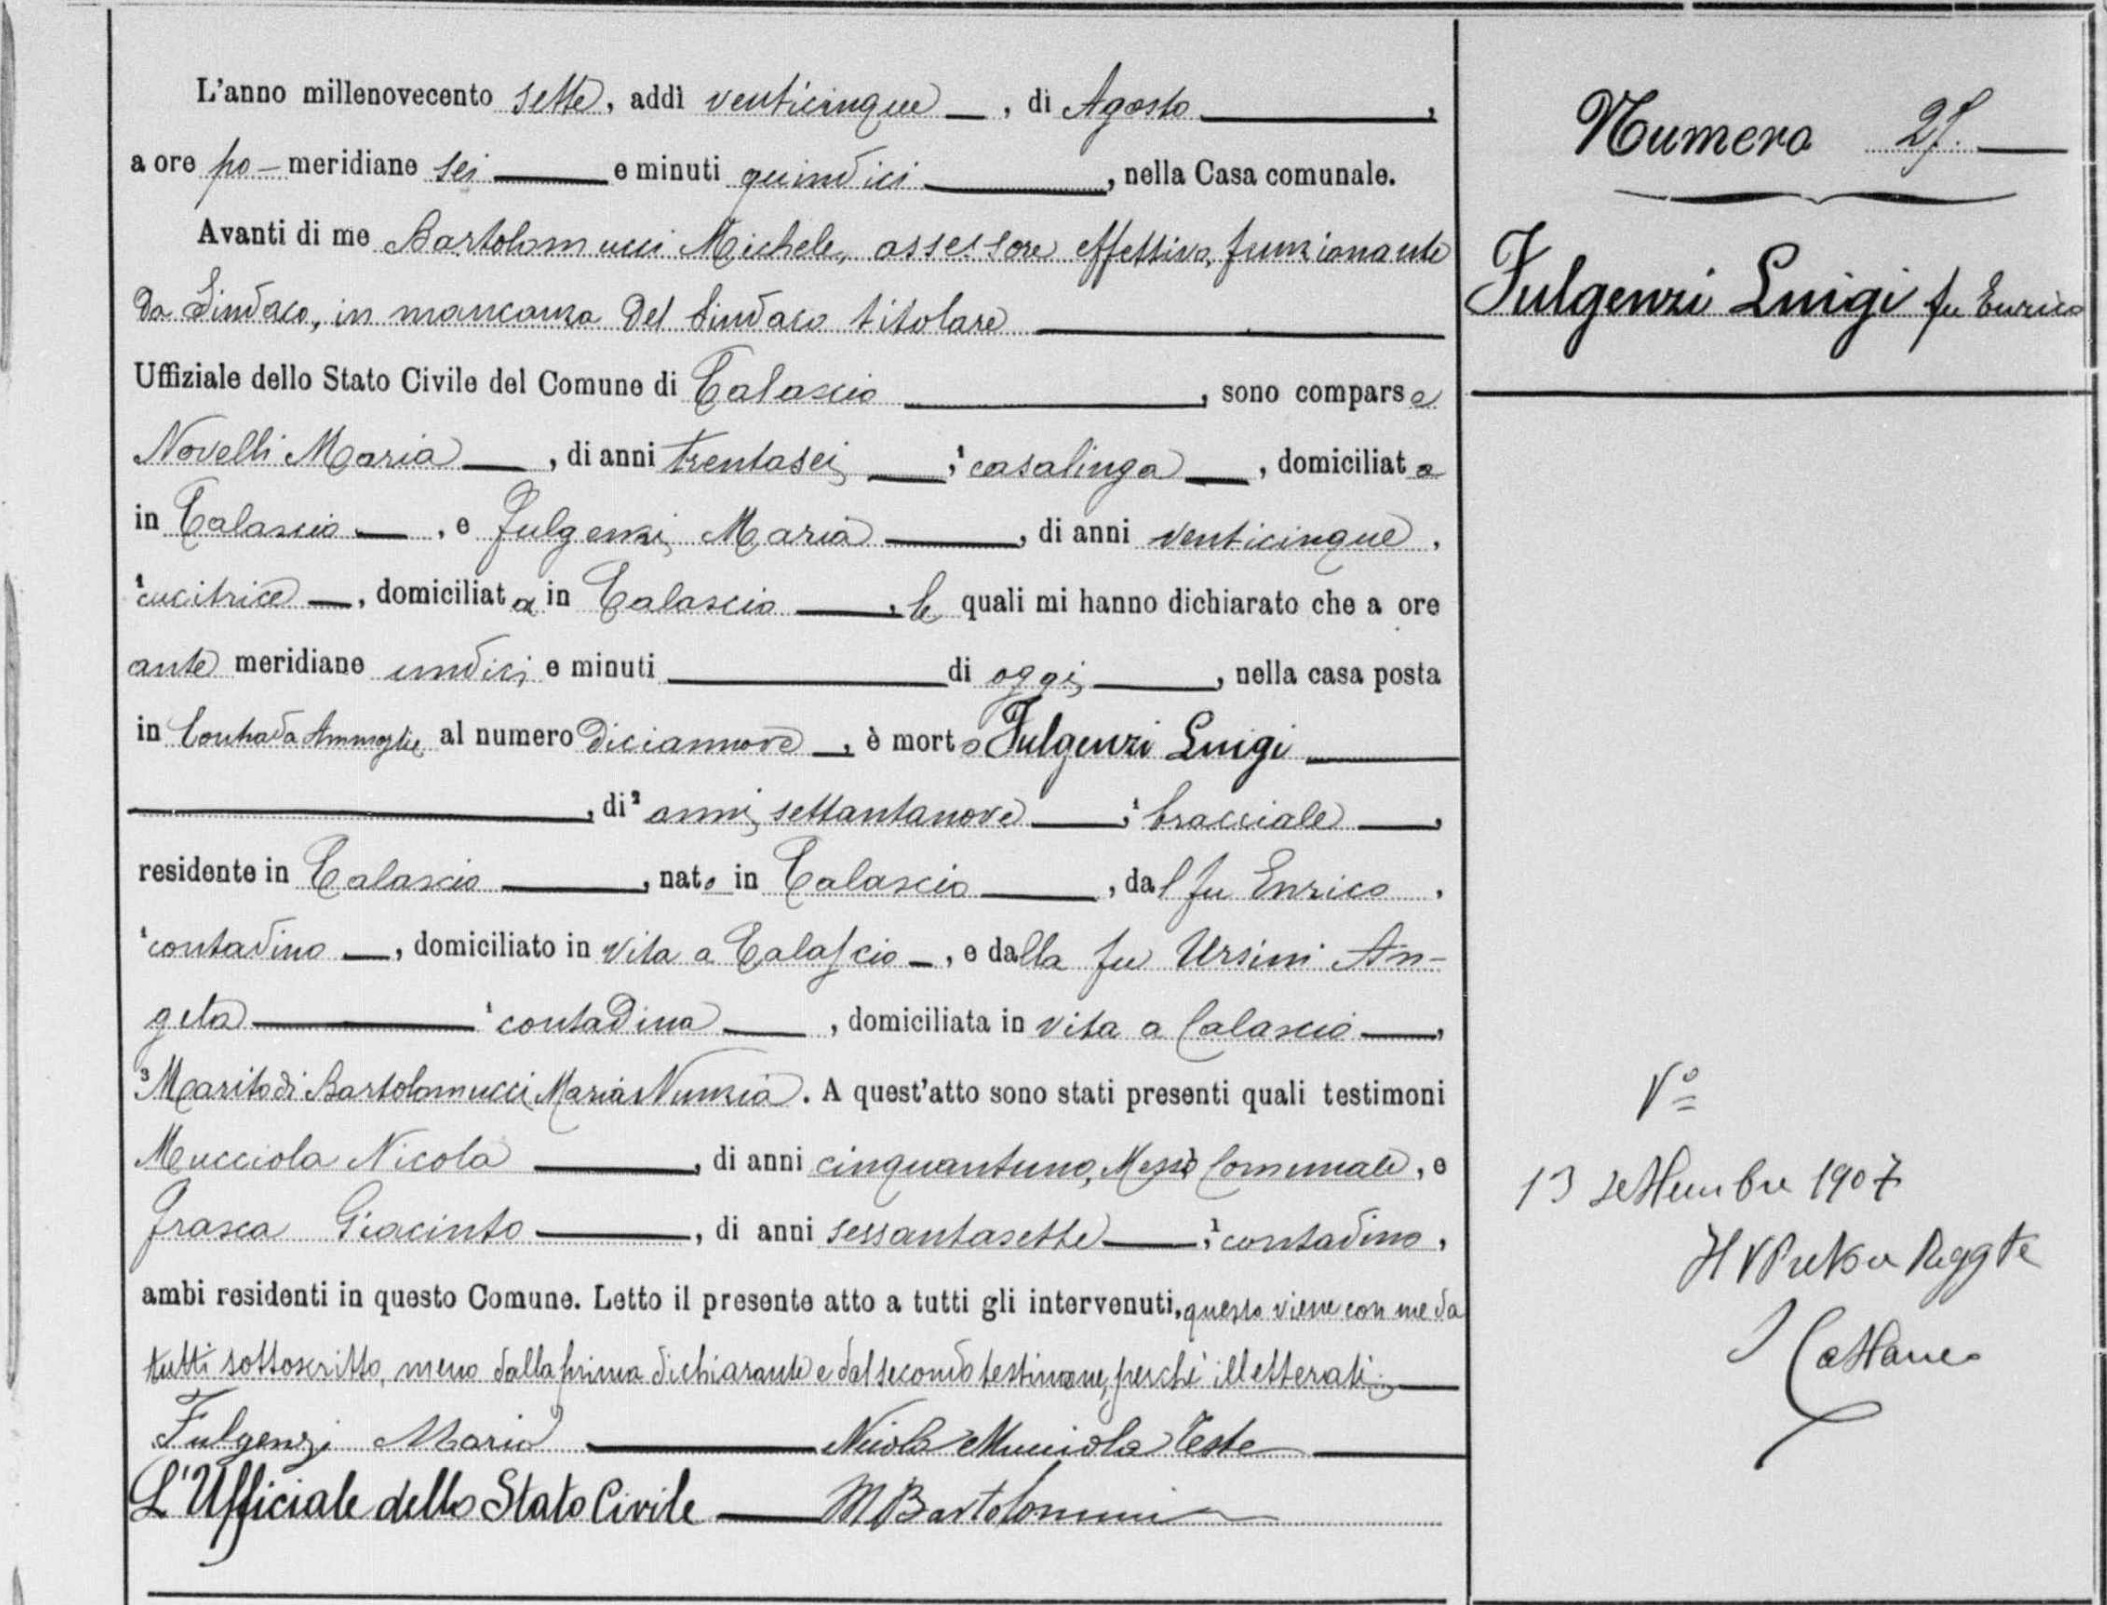 L'anno millenovecento sette, addì venticinque, di Agosto,
a ore po-meridiane sei e minuti quindici, nella Casa comunale.
Avanti di me Bartolomucci Michele, assessore effettivo, funzionante
da Sindaco, in mancanza del Sindaco titolare
Uffiziale dello Stato Civile del Comune di Calascio, sono comparse
Novelli Maria, di anni trentasei, ¹casalinga, domiciliata
in Calascio, e Fulgenzi Maria, di anni venticinque,
¹cucitrice, domiciliata in Calascio, le quali mi hanno dichiarato che a ore
ante meridiane undici e minuti di oggi, nella casa posta
in Contrada Ammoglie al numero diciannove, è morto Fulgenzi Luigi
, di² anni settantanove, ¹bracciale,
residente in Calascio, nato in Calascio, dal fu Enrico,
¹contadino, domiciliato in vita a Calascio, e dalla fu Ursini An-
gela ¹contadina, domiciliata in vita a Calascio,
³Marito di Bartolomucci Maria Nunzia. A quest'atto sono stati presenti quali testimoni
Mucciola Nicola, di anni cinquantuno, Messo Comunale, e
Frasca Giacinto, di anni sessantasette, ¹contadino,
ambi residenti in questo Comune. Letto il presente atto a tutti gli intervenuti, questo viene con me da
tutti sottoscritto, meno dalla prima dichiarante e dal secondo testimone, perchè illetterati.
Fulgenzi Maria Nicola Mucciola Teste
L'Ufficiale dello Stato Civile M Bartolomucci
Numero
Fulgenzi Luigi fu Enrico
V°
13 settembre 1907
Il V Pretore Reggte
Cattaneo